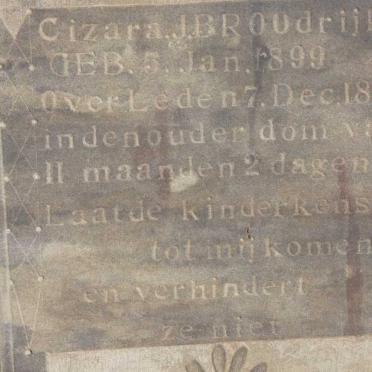 Cizara.J.BROUdrijk
GEB.5.Jan.1899
OverLeden7.Dec.18
indenouder dom va
11 maanden 2 dagen
Laatde kinderkens
tot mij komen
en verhindert
ze niet